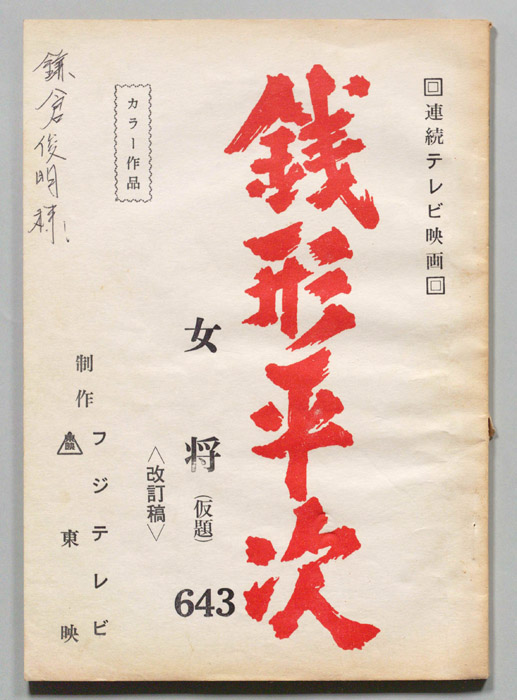 回連続テレビ映画回
銭形平次
女将（仮題）
643
〈改訂稿〉
カラー作品
制作 フジテレビ
東映
東映
鎌倉俊明様